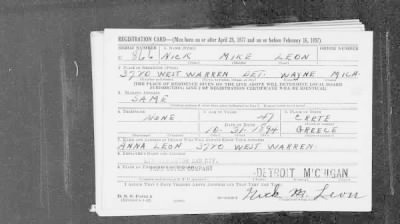 REGISTRATION CARD—(Men born on or after April 28, 1877 and on or before February 16, 1897)
SERIAL NUMBER 1. NAME (Print) ORDER NUMBER
U 866 NICK MIKE LEON
2. PLACE OF RESIDENCE (Print)
3770 WEST WARREN DET. WAYNE MICH.
[THE PLACE OF RESIDENCE GIVEN ON THE LINE ABOVE WILL DETERMINE LOCAL BOARD
JURISDICTION; LINE 2 OF REGISTRATION CERTIFICATE WILL BE IDENTICAL]
3. MAILING ADDRESS
SAME
4. TELEPHONE 5. AGE IN YEARS 6. PLACE OF BIRTH
NONE 47 CRETE
DATE OF BIRTH
10-31-1894 GREECE
7. NAME AND ADDRESS OF PERSON WHO WILL ALWAYS KNOW YOUR ADDRESS
ANNA LEON 3770 WEST WARREN
8. EMPLOYER'S NAME AND ADDRESS
FORD MOTOR COMPANY
DETROIT, MICHIGAN
I AFFIRM THAT I HAVE VERIFIED ABOVE ANSWERS AND THAT THEY ARE TRUE.
D. S. S. Form 1
Nick M. Leon